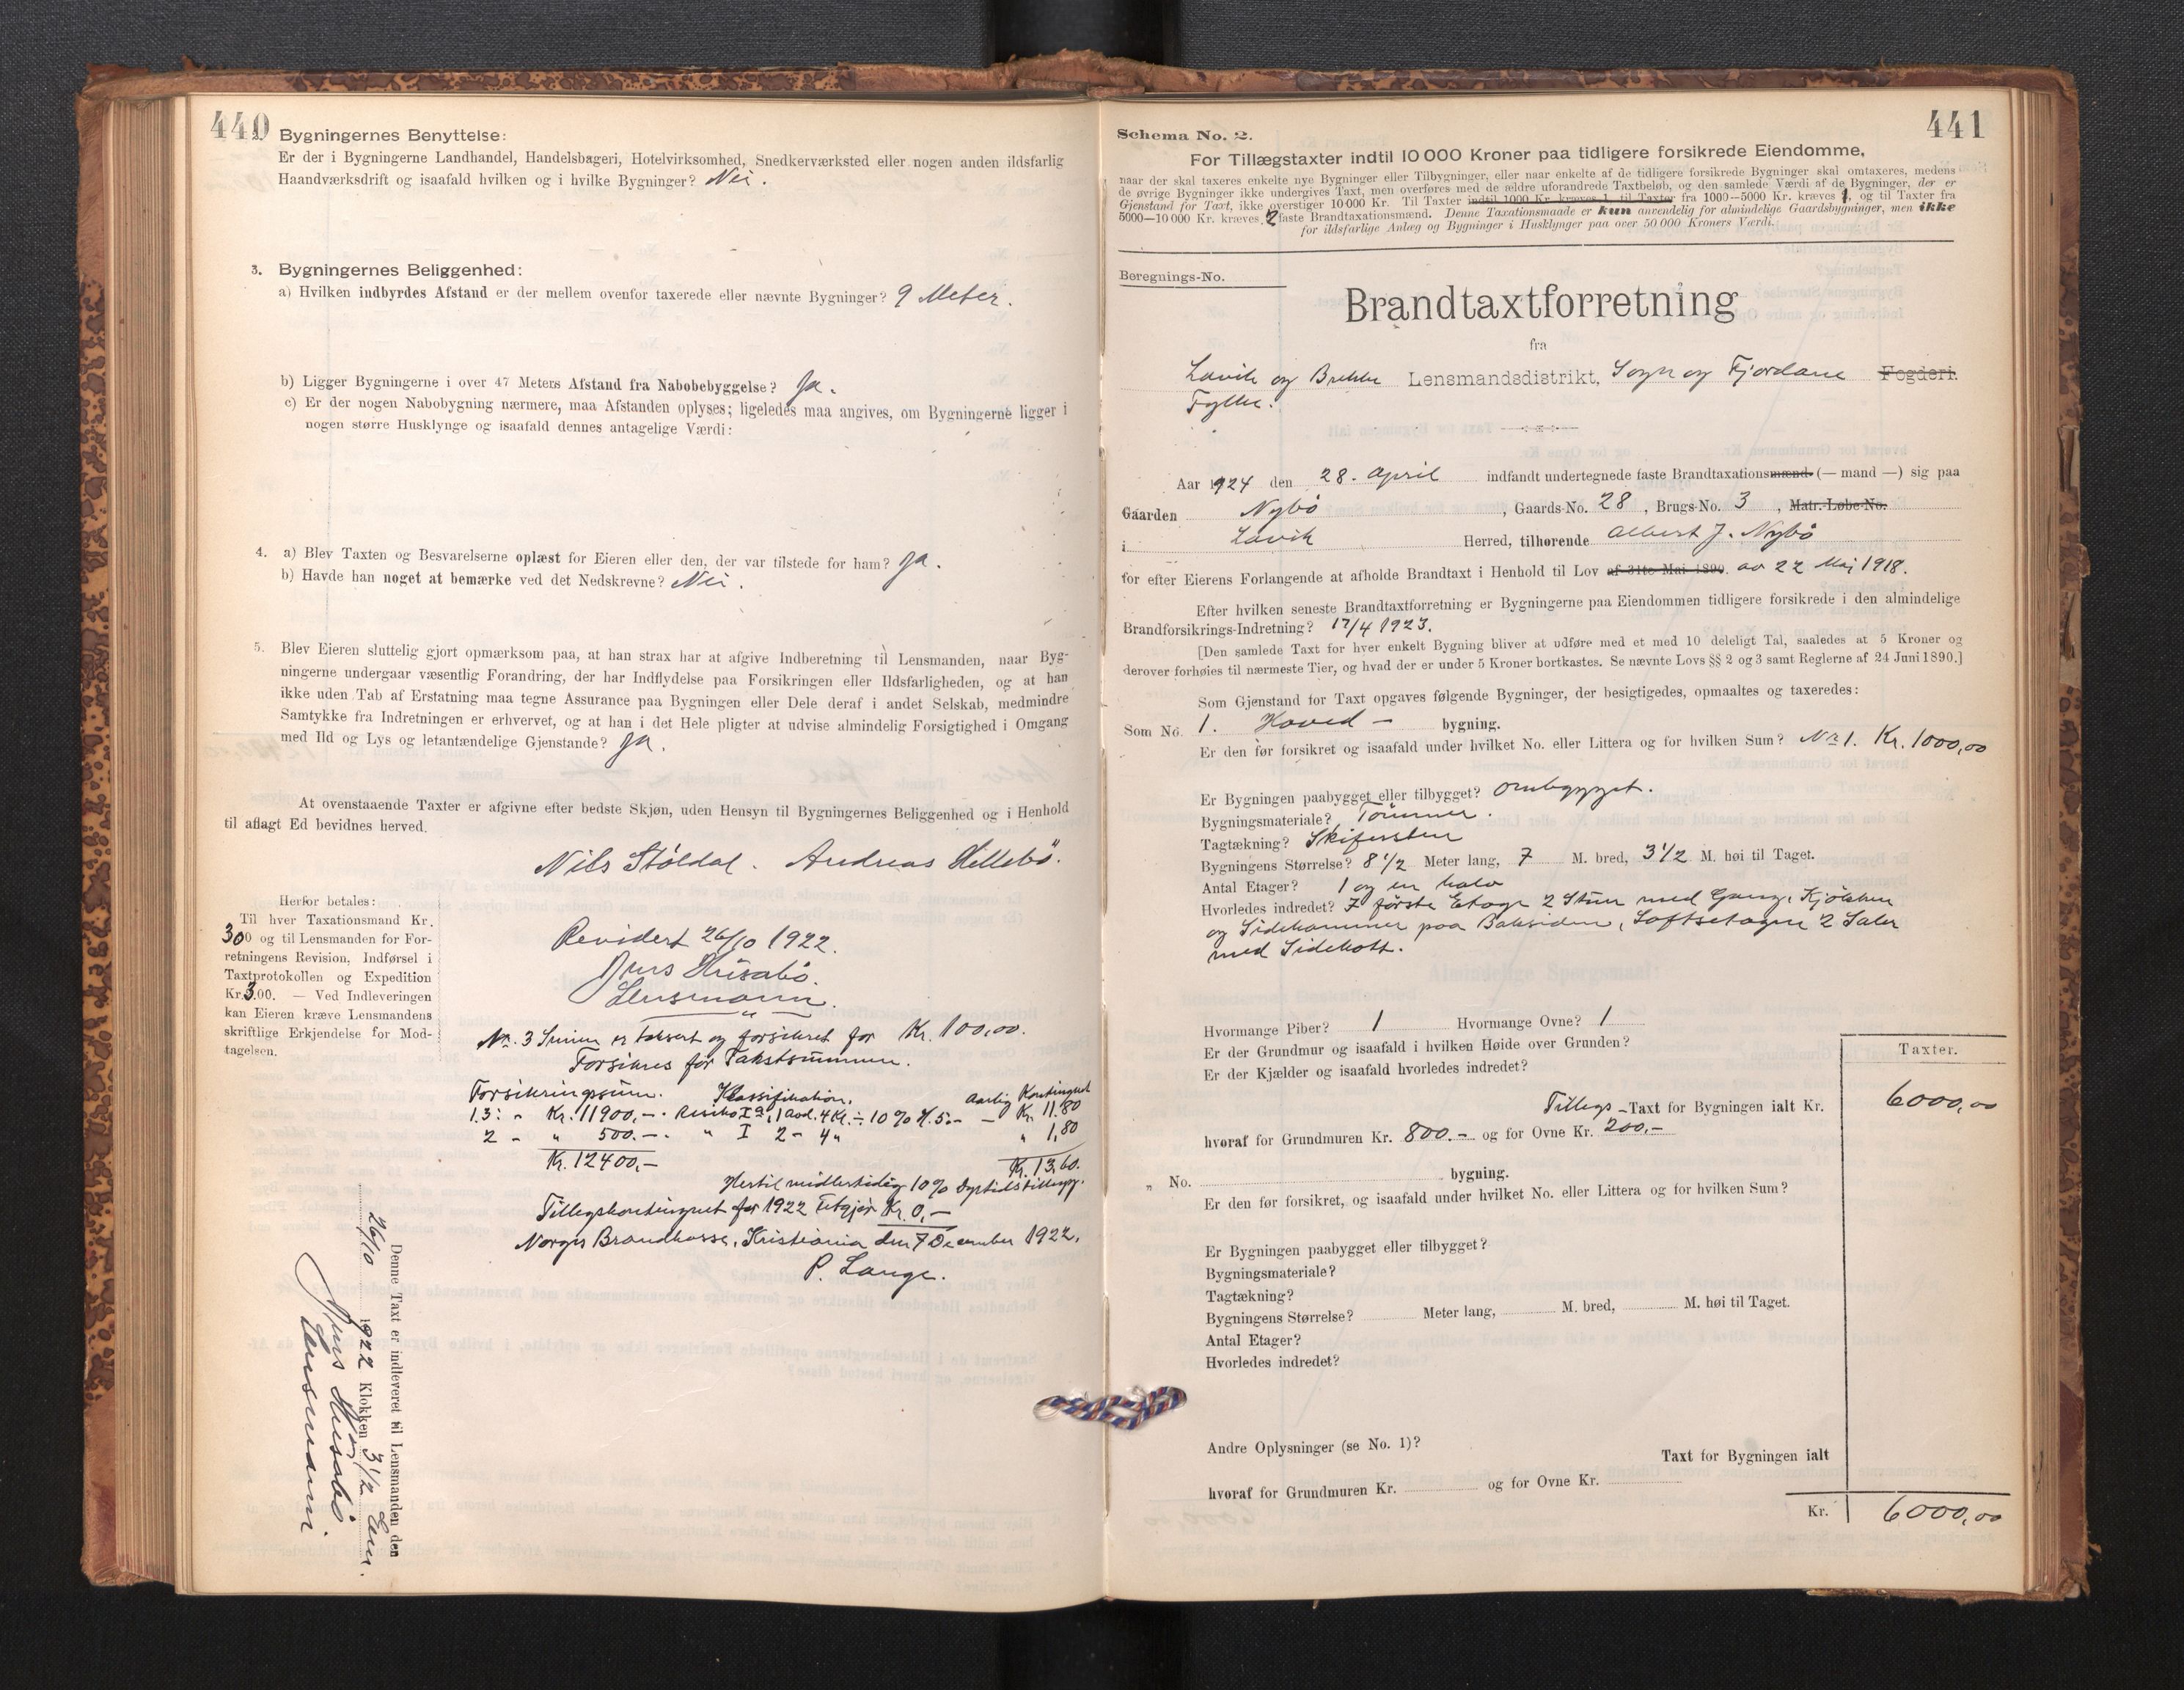 440
Bygningernes Benyttelse:
Er der i Bygningerne Landhandel, Handelsbageri, Hotelvirksomhed, Snedkerværksted eller nogen anden ildsfarlig
Haandværksdrift og isaafald hvilken og i hvilke Bygninger? Nei.
3. Bygningernes Beliggenhed:
a) Hvilken indbyrdes Afstand er der mellem ovenfor taxerede eller nævnte Bygninger? 9 Meter.
b) Ligger Bygningerne i over 47 Meters Afstand fra Nabobebyggelse? Ja.
c) Er der nogen Nabobygning nærmere, maa Afstanden oplyses; ligeledes maa angives, om Bygningerne ligger i
nogen større Husklynge og isaafald dennes antagelige Værdi:
4. a) Blev Taxten og Besvarelserne oplæst for Eieren eller den, der var tilstede for ham? Ja.
b) Havde han noget at bemærke ved det Nedskrevne? Nei.
5. Blev Eieren sluttelig gjort opmærksom paa, at han strax har at afgive Indberetning til Lensmanden, naar Byg-
ningerne undergaar væsentlig Forandring, der har Indflydelse paa Forsikringen eller Ildsfarligheden, og at han
ikke uden Tab af Erstatning maa tegne Assurance paa Bygningen eller Dele deraf i andet Selskab, medmindre
Samtykke fra Indretningen er erhvervet, og at han i det Hele pligter at udvise almindelig Forsigtighed i Omgang
med Ild og Lys og letantændelige Gjenstande? Ja.
At ovenstaaende Taxter er afgivne efter bedste Skjøn, uden Hensyn til Bygningernes Beliggenhed og i Henhold
til aflagt Ed bevidnes herved.
Nils Stöldal. Andreas Hillebö.
Herfor betales:
Til hver Taxationsmand Kr.
300 og til Lensmanden for For-
retningens Revision, Indførsel i
Taxtprotokollen og Expedition
Kr. 3.00. — Ved Indleveringen
kan Eieren kræve Lensmandens
skriftlige Erkjendelse for Mod-
tagelsen.
Revidert 26/10 1922.
Jens Husabö.
Lensmann.
Nr. 3 Smien er taksert og forsikret for Kr. 100,00.
Forsikres for Takstsummen.
Forsikringssum. Klassifikation. Aarlig Kontingent
1.3: " Kr. 11900,— . Risiko I a, 1 avd. 4 Kl. ÷ 10 % K. 5:— — Kr. 11,80
2 - " 500.—. " I 2 - 4 " " 1,80
Kr. 12400,— Kr. 13,60.
Hertil midlertidig 10% Dyrtidstillegg.
Tillegskontingent for 1922 Kr. 0,—
Norges Brandkasse, Kristiania den 7 December 1922.
P. Lange.
Denne Taxt er indleveret til Lensmanden den
26/10 1922 Klokken 3 1/2 Em.
Jens Husabö
Lensmann.
441
Schema No. 2.
For Tillægstaxter indtil 10 000 Kroner paa tidligere forsikrede Eiendomme,
naar der skal taxeres enkelte nye Bygninger eller Tilbygninger, eller naar enkelte af de tidligere forsikrede Bygninger skal omtaxeres, medens
de øvrige Bygninger ikke undergives Taxt, men overføres med de ældre uforandrede Taxtbeløb, og den samlede Værdi af de Bygninger, der er
Gjenstand for Taxt, ikke overstiger 10 000 Kr. Til Taxter indtil 1000 Kr. kræves 1, til Taxter fra 1000—5000 Kr. kræves 1, og til Taxter fra
5000—10 000 Kr. kræves 2 faste Brandtaxationsmænd. Denne Taxationsmaade er kun anvendelig for almindelige Gaardsbygninger, men ikke
for ildsfarlige Anlæg og Bygninger i Husklynger paa over 50 000 Kroners Værdi.
Beregnings-No.
Brandtaxtforretning
fra
Lavik og Brekke Lensmandsdistrikt, Sogn og Fjordane Fogderi.
Fylke.
Aar 1924 den 28. April indfandt undertegnede faste Brandtaxationsmænd (— mand —) sig paa
Gaarden Nybö, Gaards-No. 28, Brugs-No. 3, Matr.-Løbe-No.
i Lavik Herred, tilhørende Albert J. Nybö
for efter Eierens Forlangende at afholde Brandtaxt i Henhold til Lov af 31te Mai 1890. av 22 Mai 1918.
Efter hvilken seneste Brandtaxtforretning er Bygningerne paa Eiendommen tidligere forsikrede i den almindelige
Brandforsikrings-Indretning? 17/4 1923.
[Den samlede Taxt for hver enkelt Bygning bliver at udføre med et med 10 deleligt Tal, saaledes at 5 Kroner og
derover forhøies til nærmeste Tier, og hvad der er under 5 Kroner bortkastes. Se nævnte Lovs §§ 2 og 3 samt Reglerne af 24 Juni 1890.]
Som Gjenstand for Taxt opgaves følgende Bygninger, der besigtigedes, opmaaltes og taxeredes:
Som No. 1. Hoved— bygning.
Er den før forsikret og isaafald under hvilket No. eller Littera og for hvilken Sum? Nr 1. Kr. 1000,00
Er Bygningen paabygget eller tilbygget? ombygget.
Bygningsmateriale? Tömmer.
Tagtækning? Skifersten
Bygningens Størrelse? 8 1/2 Meter lang, 7 M. bred, 3 1/2 M. høi til Taget.
Antal Etager? 1 og en halv
Hvorledes indredet? I förste Etage 2 Stuer med Gang, Kjökken
og Sidekammer paa Baksiden, Loftsetagen 2 Saler
med Sidekott.
Hvormange Piber? 1 Hvormange Ovne? 1
Er der Grundmur og isaafald i hvilken Høide over Grunden?
Er der Kjælder og isaafald hvorledes indredet?
Taxter.
Tillegs-Taxt for Bygningen ialt Kr. 6000,00
hvoraf for Grundmuren Kr. 800.— og for Ovne Kr. 200.—
„ No. bygning.
Er den før forsikret, og isaafald under hvilket No. eller Littera og for hvilken Sum?
Er Bygningen paabygget eller tilbygget?
Bygningsmateriale?
Tagtækning?
Bygningens Størrelse? Meter lang, M. bred, M. høi til Taget.
Antal Etager?
Hvorledes indredet?
Andre Oplysninger (se No. 1)?
Taxt for Bygningen ialt
hvoraf for Grundmuren Kr. og for Ovne Kr.
Kr. 6000,00